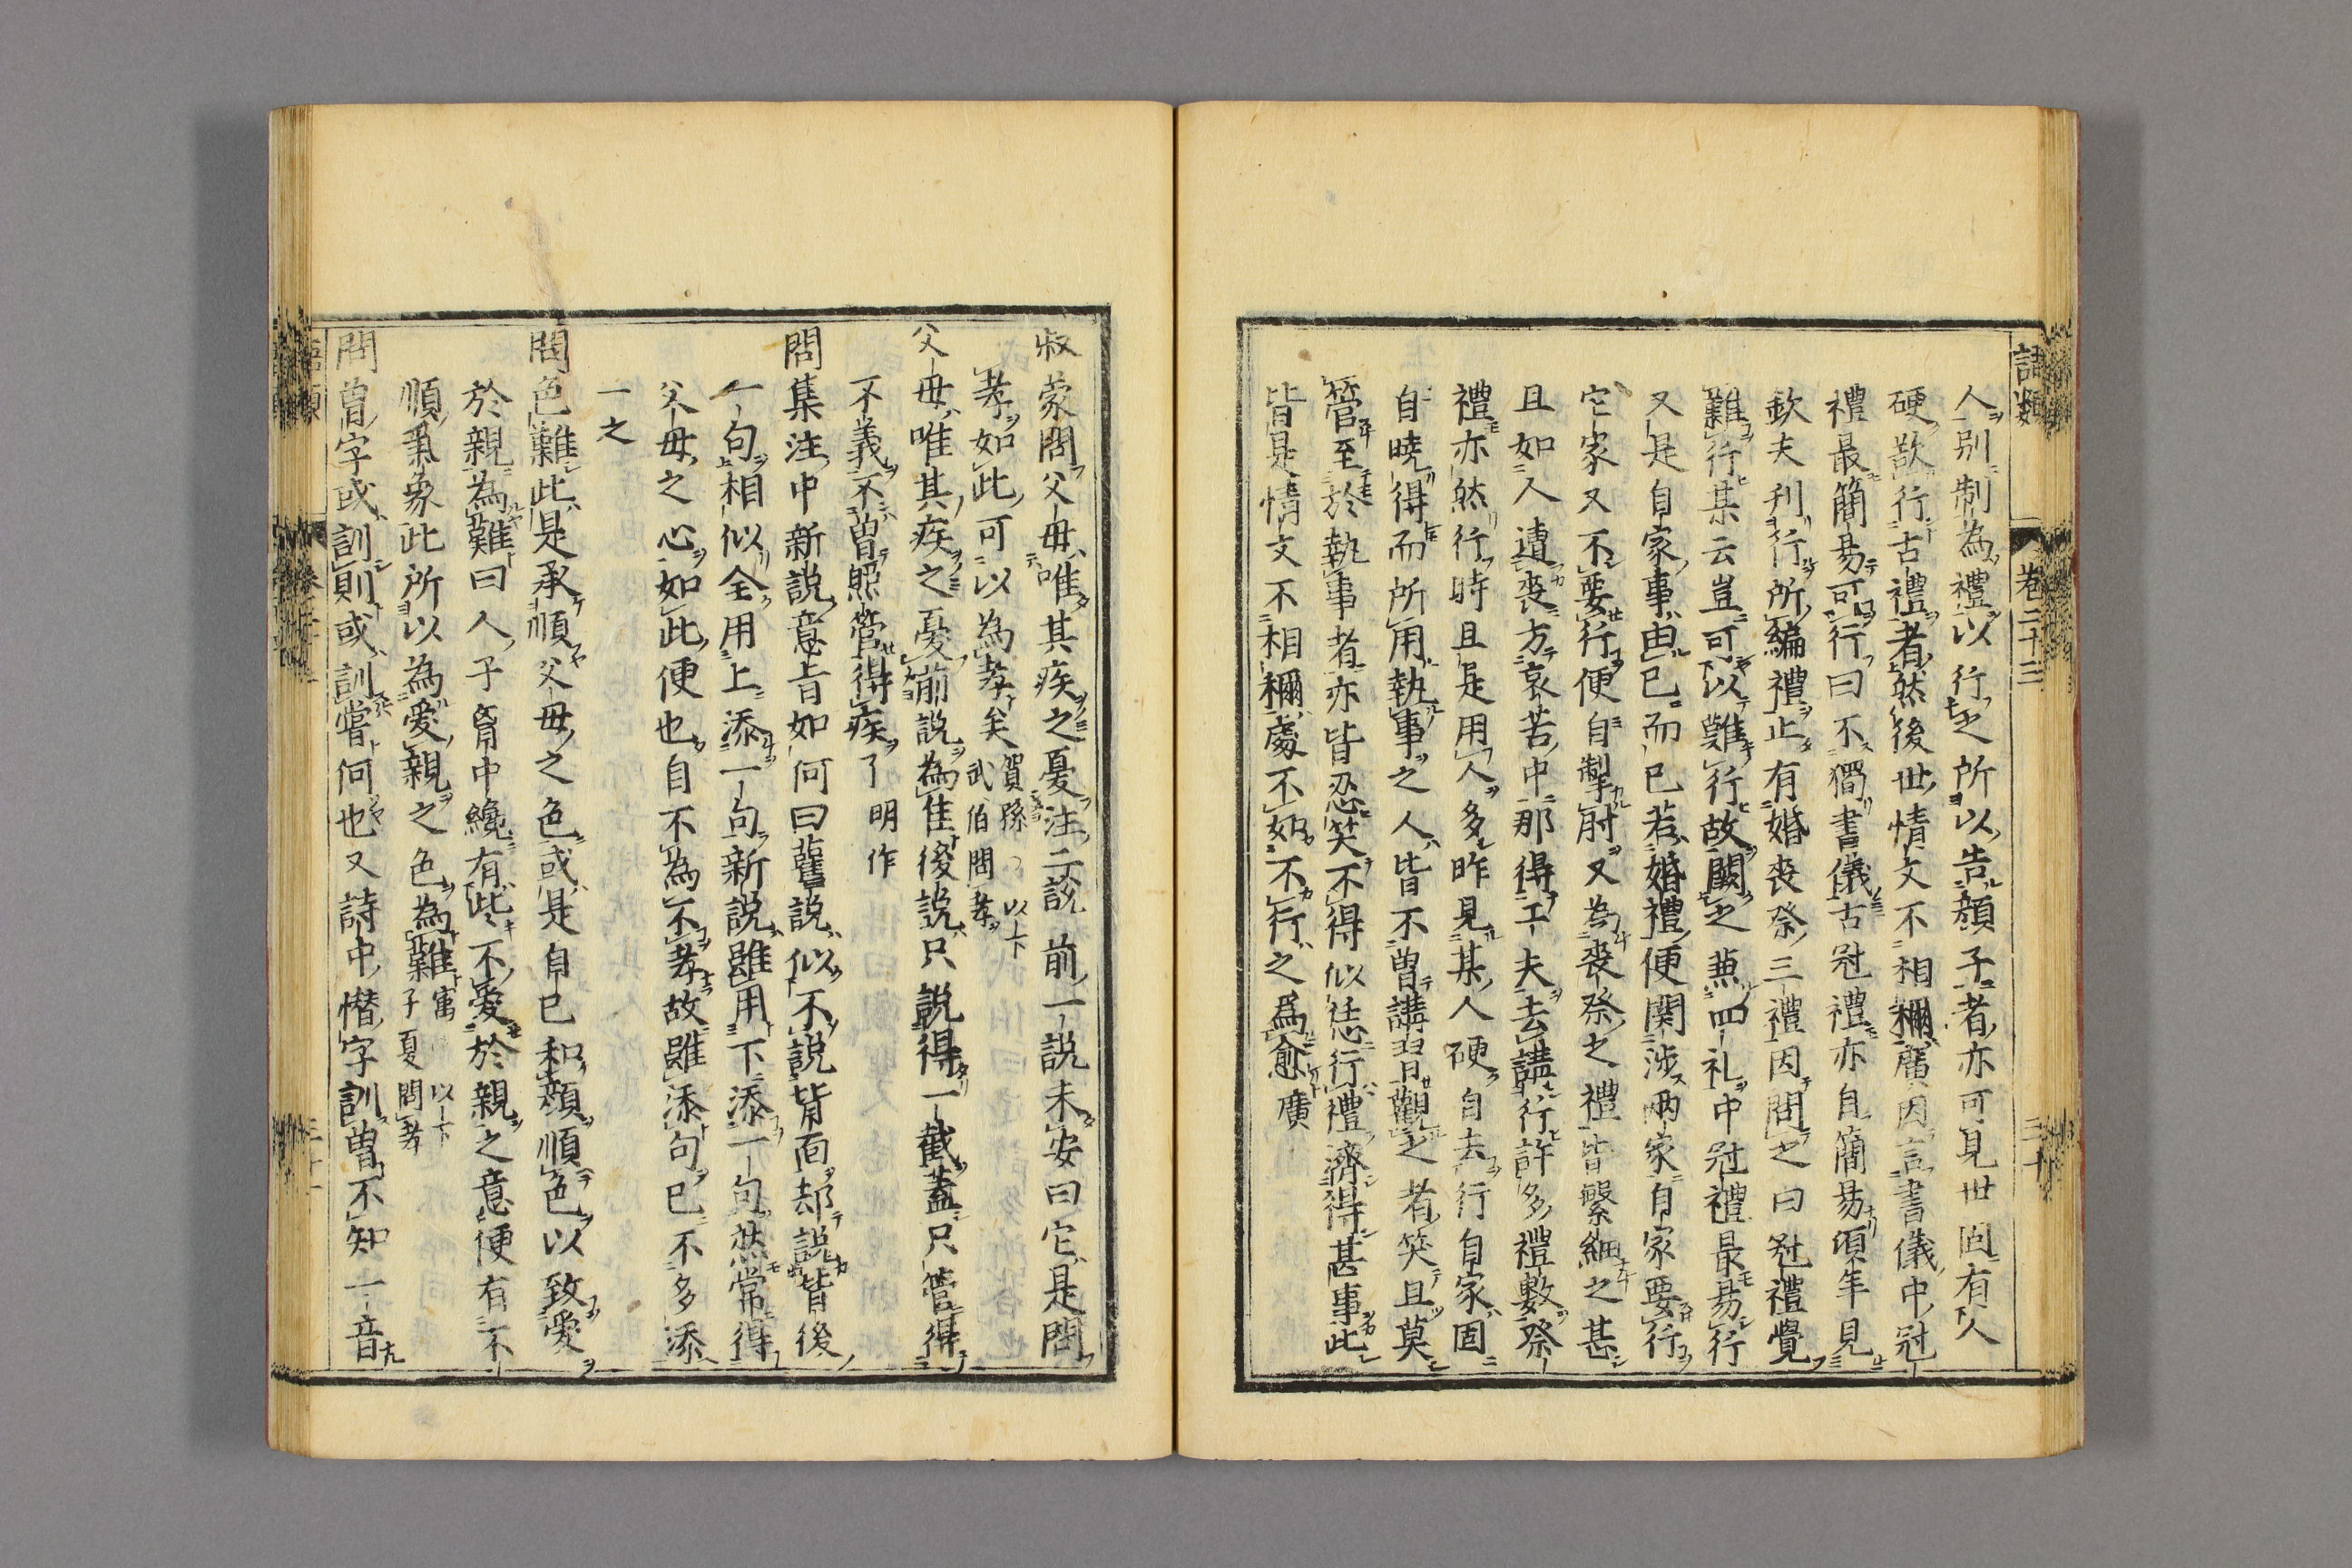 語類 卷二十三 三十
人別制為禮以行之所以告顏子者亦可見世固有人
硬欲行古禮者然後世情文不相稱廣因言書儀中冠
禮最簡易可行曰不獨書儀古冠禮亦自簡易頃年見
欽夫刋行所編禮止有婚喪祭三禮因問之曰冠禮覺
難行某云豈可以難行故闕之兼四礼中冠禮最易行
又是自家事由已而已若婚禮便関涉兩家自家要行
它家又不要行便自掣肘又為喪祭之禮皆繁細之甚
且如人遭喪方哀苦中那得工夫去講行許多禮數祭
禮亦然行時且是用人多昨見某人硬自去行自家固
自曉得而所用執事之人皆不曾講習觀之者笑且莫
管至於執事者亦皆忍笑不得似恁行禮濟得甚事此
皆是情文不相稱處不如不行之爲愈廣
叔蒙問父母唯其疾之憂注二說前一說未安曰它是問
孝如此可以為孝矣賀孫 以下武伯問孝
父母唯其疾之憂前說為佳後說只說得一截蓋只管得
不義不曾照管得疾了明作
問集注中新說意旨如何曰舊說似不說背面却說背後
一句相似全用上添一句新說雖用下添一句然常得
父母之心如此便也自不為不孝故雖添句已不多添
一之
問色難此是承順父母之色或是自已和顏順色以致愛
於親為難曰人子胷中纔有些不愛於親之意便有不
順氣象此所以為愛親之色為難㝢 以下子夏問孝
問曾字或訓則或訓嘗何也又詩中憯字訓曾不知一音
語類 卷二十三